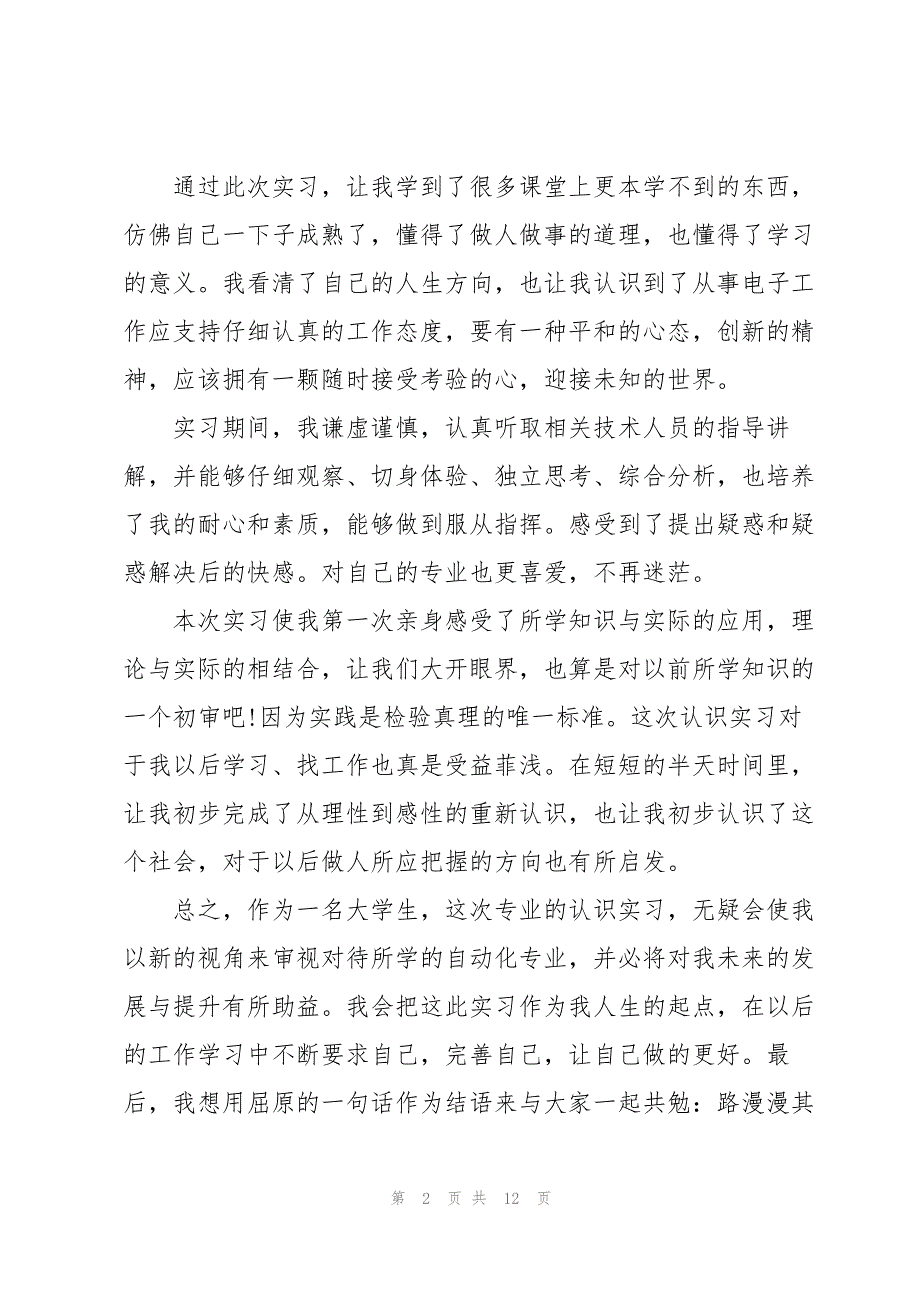 通过此次实习，让我学到了很多课堂上更本学不到的东西，
仿佛自己一下子成熟了，懂得了做人做事的道理，也懂得了学习
的意义。我看清了自己的人生方向，也让我认识到了从事电子工
作应支持仔细认真的工作态度，要有一种平和的心态，创新的精
神，应该拥有一颗随时接受考验的心，迎接未知的世界。
实习期间，我谦虚谨慎，认真听取相关技术人员的指导讲
解，并能够仔细观察、切身体验、独立思考、综合分析，也培养
了我的耐心和素质，能够做到服从指挥。感受到了提出疑惑和疑
惑解决后的快感。对自己的专业也更喜爱，不再迷茫。
本次实习使我第一次亲身感受了所学知识与实际的应用，理
论与实际的相结合，让我们大开眼界，也算是对以前所学知识的
一个初审吧!因为实践是检验真理的唯一标准。这次认识实习对
于我以后学习、找工作也真是受益菲浅。在短短的半天时间里，
让我初步完成了从理性到感性的重新认识，也让我初步认识了这
个社会，对于以后做人所应把握的方向也有所启发。
总之，作为一名大学生，这次专业的认识实习，无疑会使我
以新的视角来审视对待所学的自动化专业，并必将对我未来的发
展与提升有所助益。我会把这此实习作为我人生的起点，在以后
的工作学习中不断要求自己，完善自己，让自己做的更好。最
后，我想用屈原的一句话作为结语来与大家一起共勉：路漫漫其
第 2 页 共 12 页